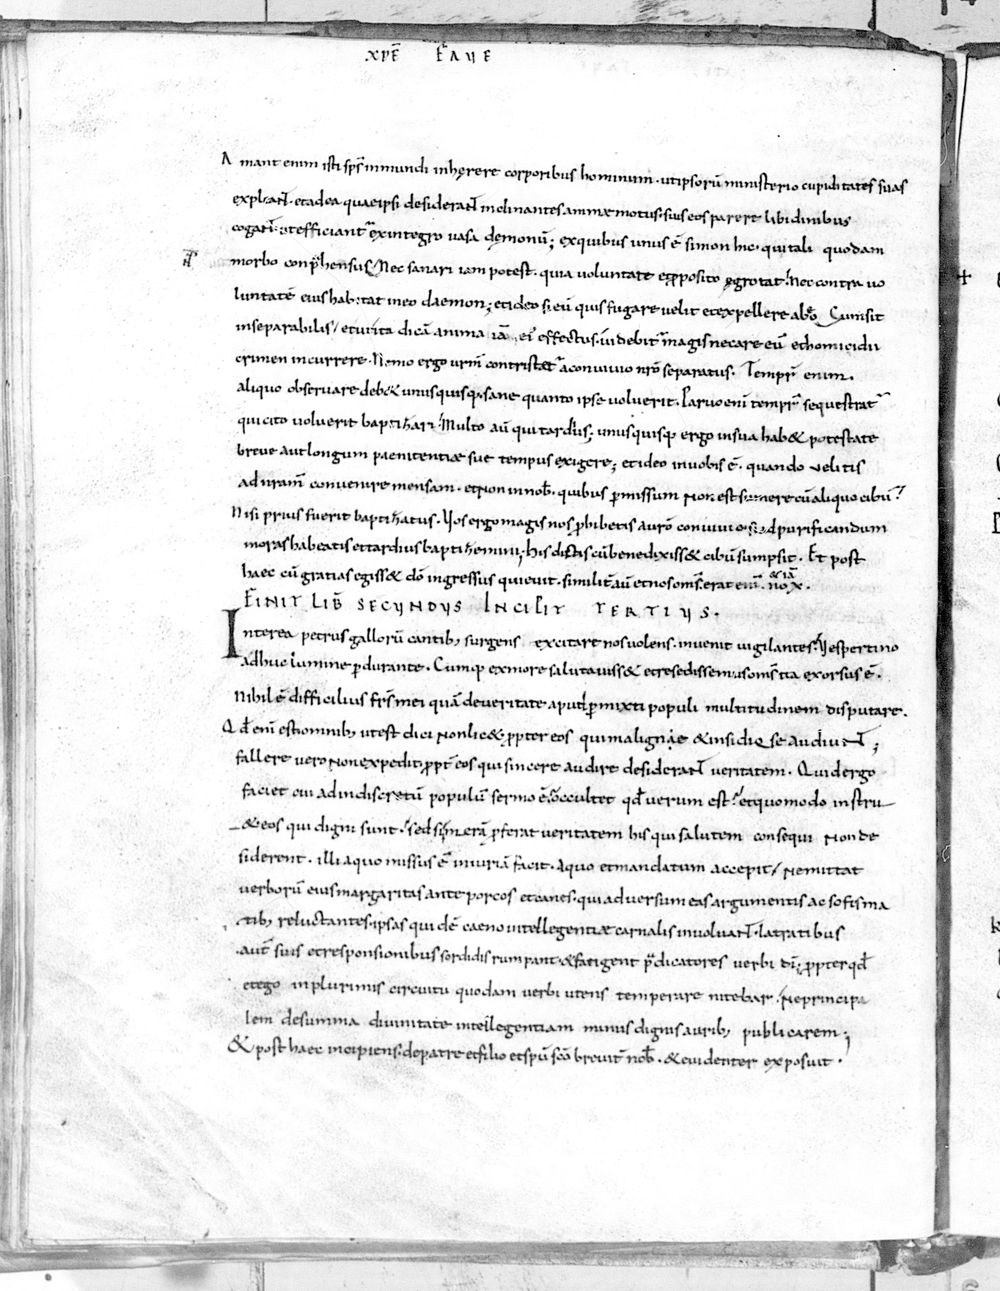 XPĒ FAVE
Amant enim isti sp̄s inmundi inherere corporibus hominum. utipsorū ministerio cupiditates suas
expleant. etadea quaeipsi desiderant inclinantes animae motus. suis eos parere libidinibus
cogant. utefficiant exintegro vasa demonū; exquibus unus ē simon hic. quitali quodam
morbo conp̄hensus. Nec sanari iam potest. quia voluntate etproposito egrotat. Nec contra vo
luntatē eius habitat ineo daemon; etideo si eū quis fugare velit etexpellere abeo. Cumsit
inseparabilis/ eturita dicā anima iā ei effectus. videbit magis necare eū ethomicidii
crimen incurrere. Nemo ergo vrm̄ contristet aconvivio nr̄o separatus. Tempr̄ enim.
aliquo observare deb& unusquisq; sane quanto ipse voluerit. Parvo eni tempr̄ sequestrat
qui cito voluerit baptizari. Multo aū qui tardius; unusquisq; ergo insua hab& potestate
breve autlongum paenitentiae sue tempus exigere; etideo invobis ē. quando velitis
ad nram̄ convenire mensam. etNon in nob̄. quibus p̄missum Non est sumere cū aliquo cibū
Nisi prius fuerit baptizatus. Vos ergo magis nos p̄hibetis a vr̄o convivio. si ad purificandum
moras habeatis ettardius baptizemini; his dictis cū benedixiss& cibū sumpsit. Et post
haec cū gratias egiss& dō ingressus quievit. similit̄ aū etnos oms̄. erat enī. & iā nox.
FINIT LIB̄ SECUNDUS INCIPIT TERTIUS.
Interea petrus gallorū cantib; surgens excitare nos volens. invenit vigilantes. Vespertino
adhuc lumine p̄durante. Cumq; exmore salutaviss& etresedissemus oms̄ ita exorsus ē.
Nihil ē difficilius fr̄s mei quā deveritate aput p̄mixti populi multitudinem disputare.
Qd̄ enī est omnib; utest dici Nonlic& p̄pter eos qui maligne & insidiose audiunt;
fallere vero Nonexpedit p̄pt̄ eos qui sincere audire desiderant veritatem. Quid ergo
faciet cui ad indiscretū populū sermo ē. occultet qd̄ verum est. etquomodo instru
&eos qui digni sunt. sed si merā p̄ferat veritatem his qui salutem consequi Non de
siderent. illi aquo missus ē iniuriā facit. aquo etmandatum accepit/ Nemittat
verborū eius margaritas ante porcos etcanes. qui adversum eas argumentis ac sofisma
tib; reluctantes. ipsas quidē caeno intellegentiae carnalis involvant. latratibus
aut̄ suis etresponsionibus sordidis rumpant. &fatigent p̄dicatores verbi dī; p̄pterqd̄
etego inplurimis circuitu quodam verbi utens temperare nitebar. Neprincipa
lem desumma divinitate intellegentiam minus dignis aurib; publicarem;
& post haec incipiens. depatre etfilio etspū scō brevit̄ nob̄. &evidenter exposuit.